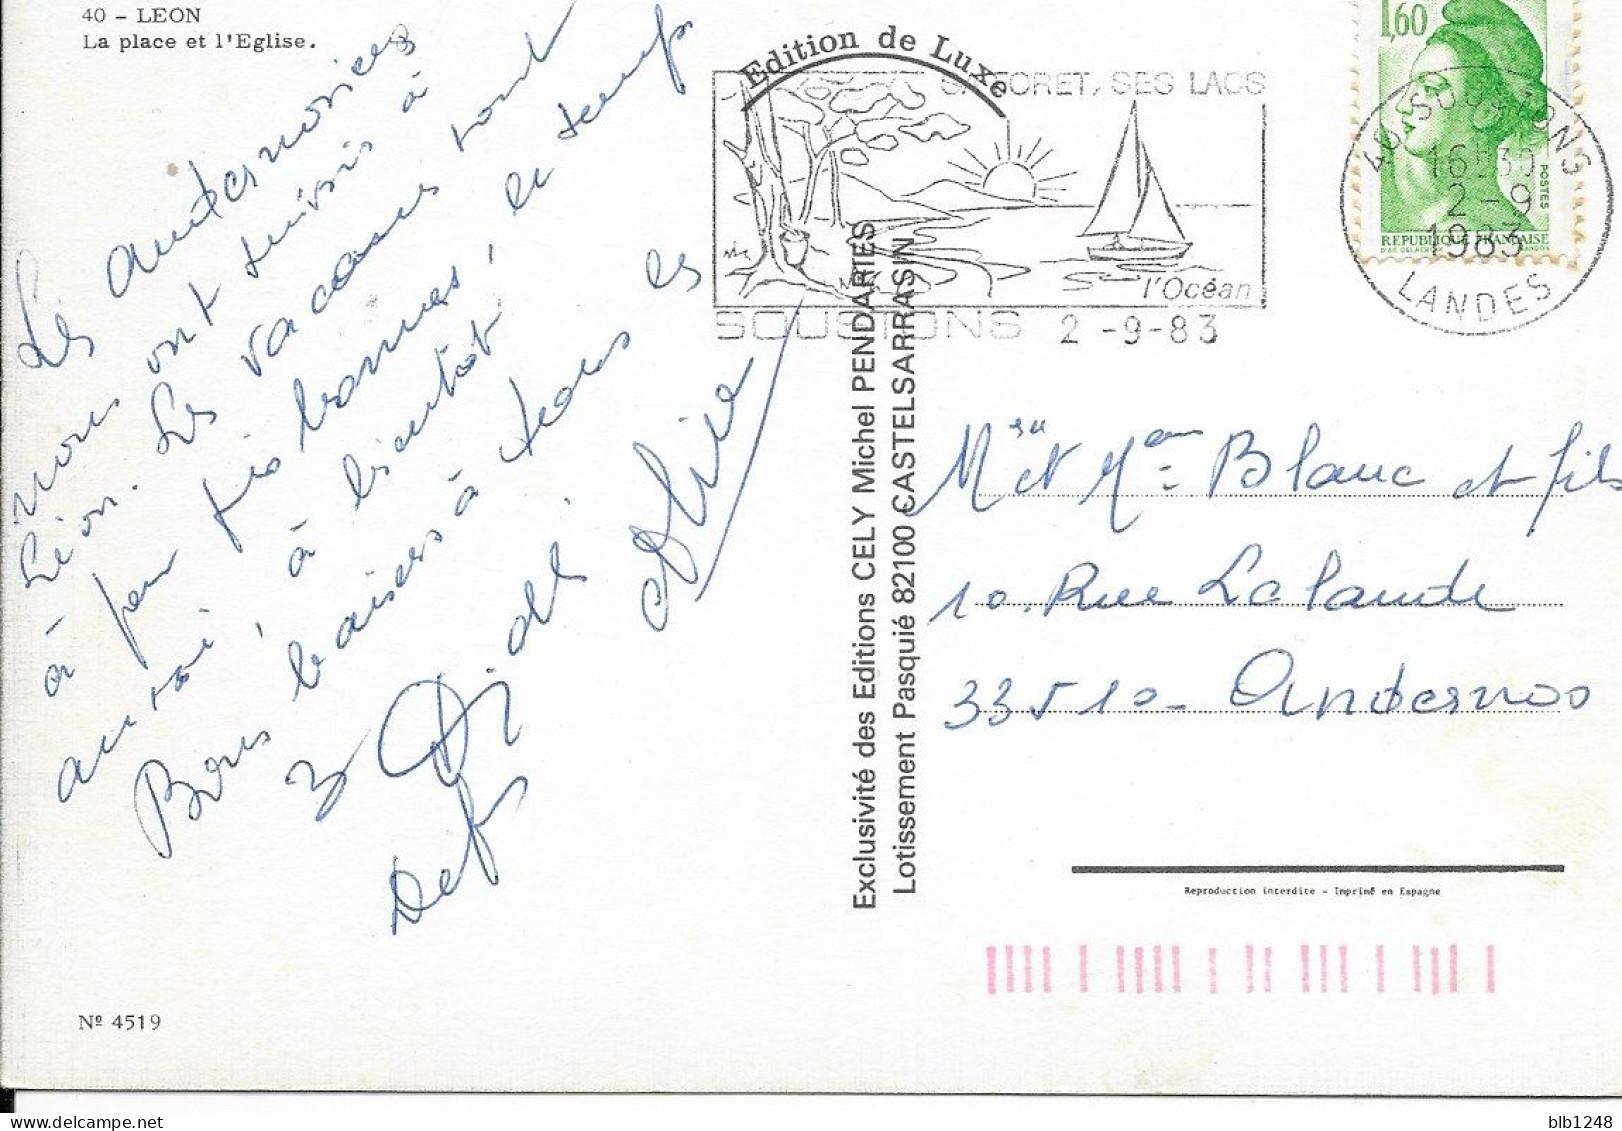 40 - LEON
La place et l'Eglise.
Les andernosiens
nous ont suivis à
Léon. Les vacances sont
à peu près bonnes, le temps
aussi, à bientôt
Bons baisers à tous les
3
Edition de Luxe
SA FORET, SES LACS
l'Océan
SOUSTONS 2 -9-83
1,60
POSTES
REPUBLIQUE FRANÇAISE
40 SOUSTONS
16H35
2 -9
1983
LANDES
Exclusivité des Editions CELY Michel PENDARIES
Lotissement Pasquié 82100 CASTELSARRASIN
Mr et Mme Blanc et fils
10. Rue Lalande
33510 - Andernos
Reproduction interdite - Imprimé en Espagne
Nº 4519
blb1248